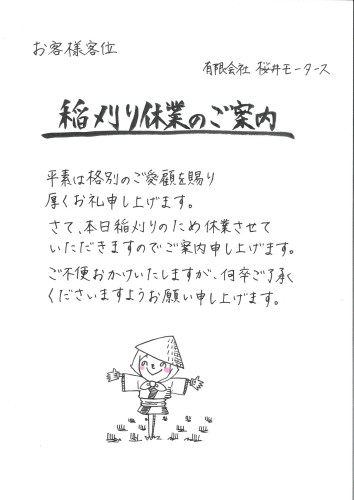 お客様客位
有限会社 桜井モータース
稲刈り休業のご案内
平素は格別のご愛顧を賜り
厚くお礼申し上げます。
さて、本日稲刈りのため休業させて
いただきますのでご案内申し上げます。
ご不便おかけいたしますが、何卒ご了承
くださいますようお願い申し上げます。